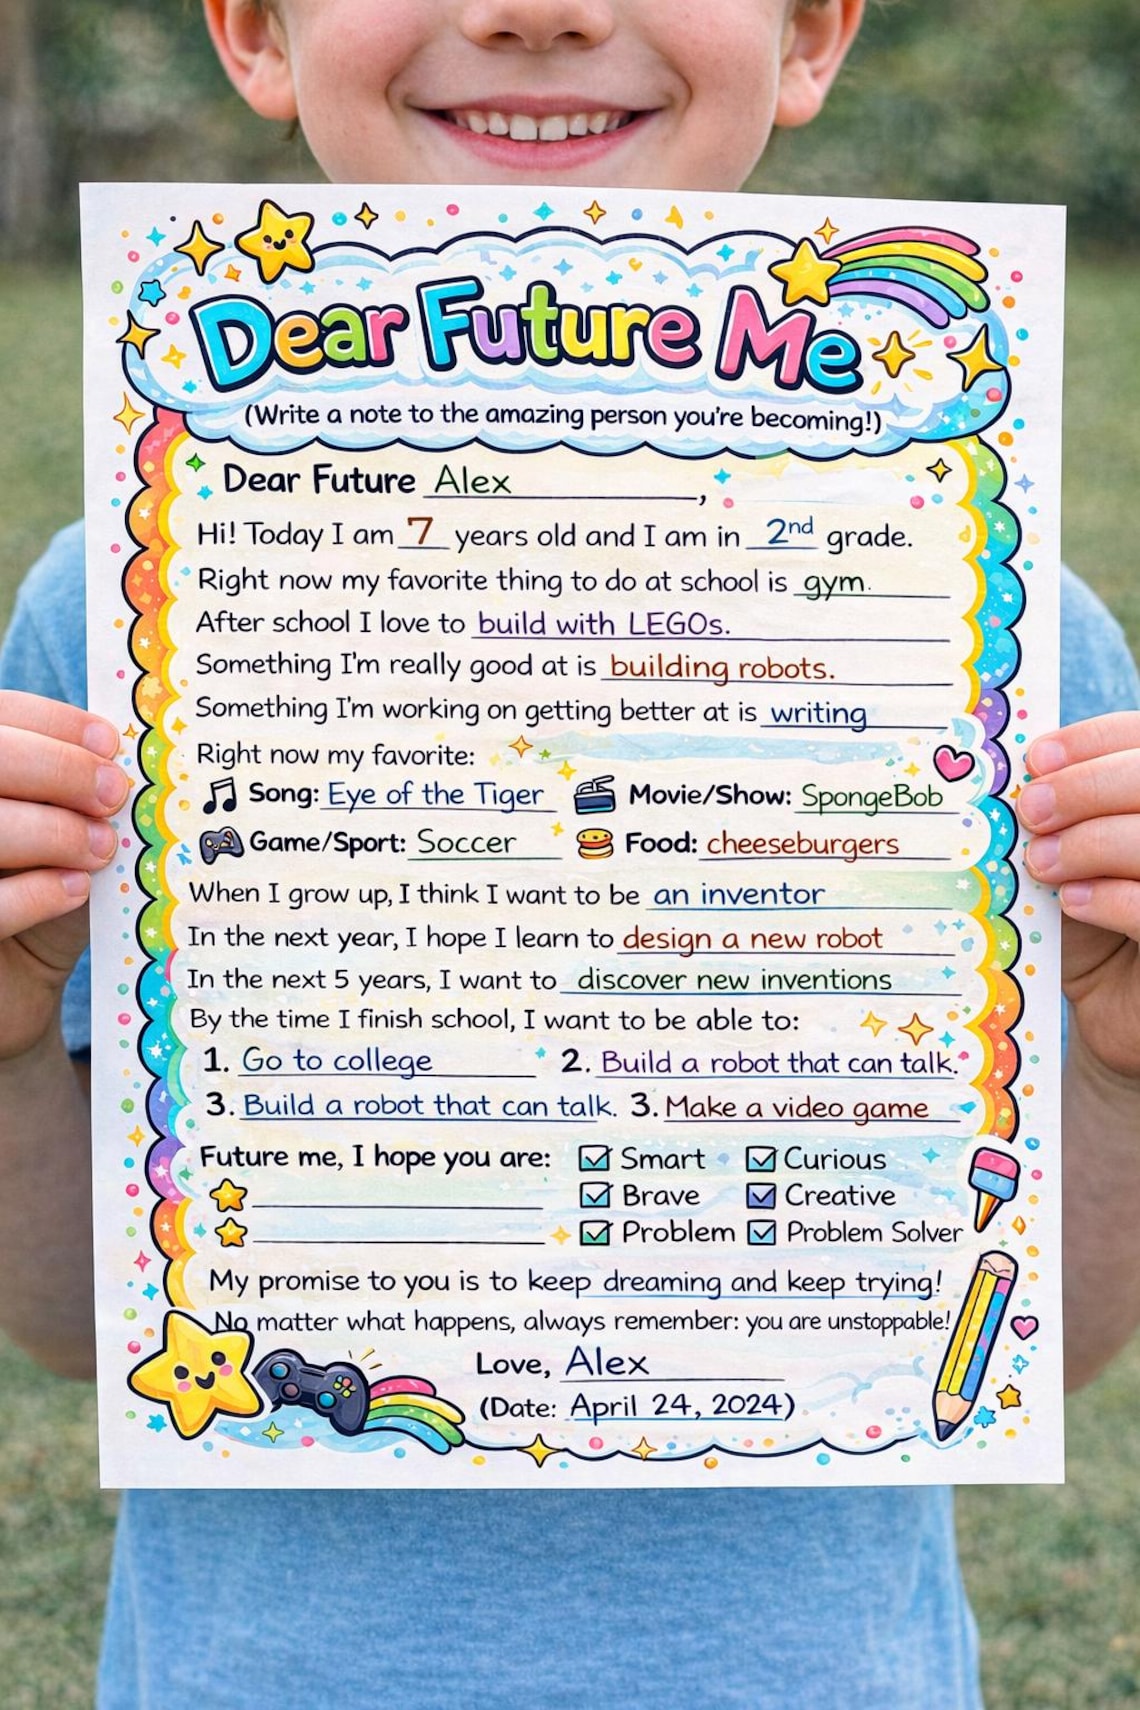 Dear Future Me
(Write a note to the amazing person you're becoming!)
Dear Future Alex,
Hi! Today I am 7 years old and I am in 2nd grade.
Right now my favorite thing to do at school is gym.
After school I love to build with LEGOs.
Something I'm really good at is building robots.
Something I'm working on getting better at is writing
Right now my favorite:
Song: Eye of the Tiger Movie/Show: SpongeBob
Game/Sport: Soccer Food: cheeseburgers
When I grow up, I think I want to be an inventor
In the next year, I hope I learn to design a new robot
In the next 5 years, I want to discover new inventions
By the time I finish school, I want to be able to:
1. Go to college 2. Build a robot that can talk.
3. Build a robot that can talk. 3. Make a video game
Future me, I hope you are: Smart Curious
Brave Creative
Problem Problem Solver
My promise to you is to keep dreaming and keep trying!
No matter what happens, always remember: you are unstoppable!
Love, Alex
(Date: April 24, 2024)